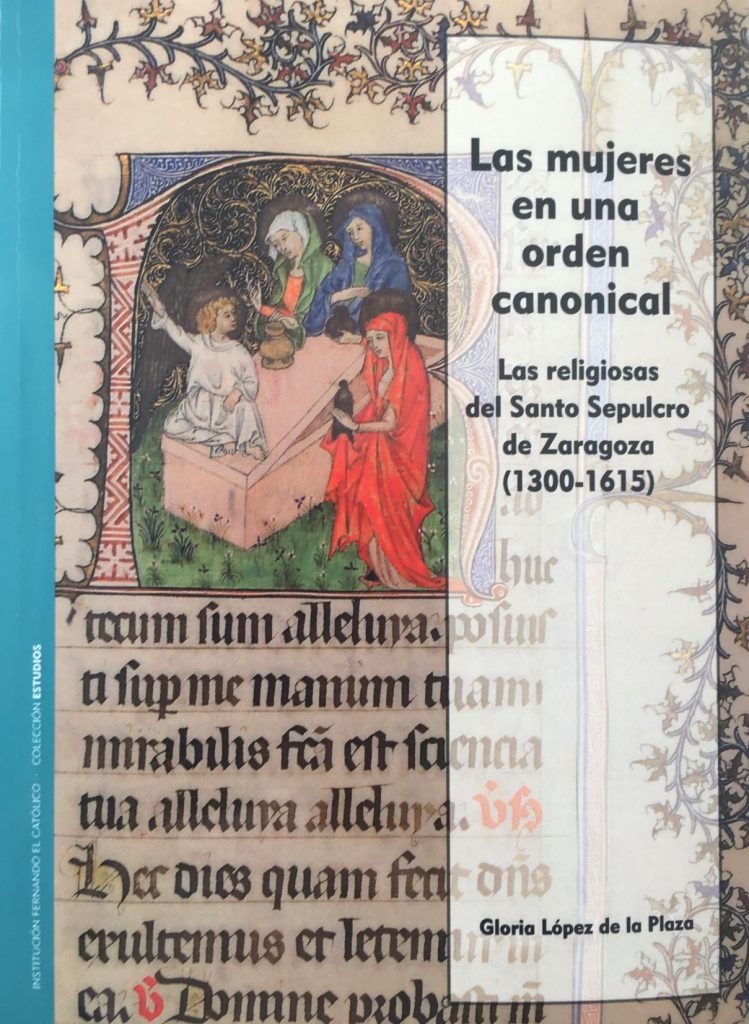 Las mujeres
en una
orden
canonical
Las religiosas
del Santo Sepulcro
de Zaragoza
(1300-1615)
huc
tecum sum alleluya. posuis
ti sup me manum tuam
mirabilis fcā est sciencia
tua alleluya alleluya.
Hec dies quam fecit dn̄s
exultemus et letemur in
ea. Domine probasti m̄
Gloria López de la Plaza
INSTITUCIÓN FERNANDO EL CATÓLICO · COLECCIÓN ESTUDIOS